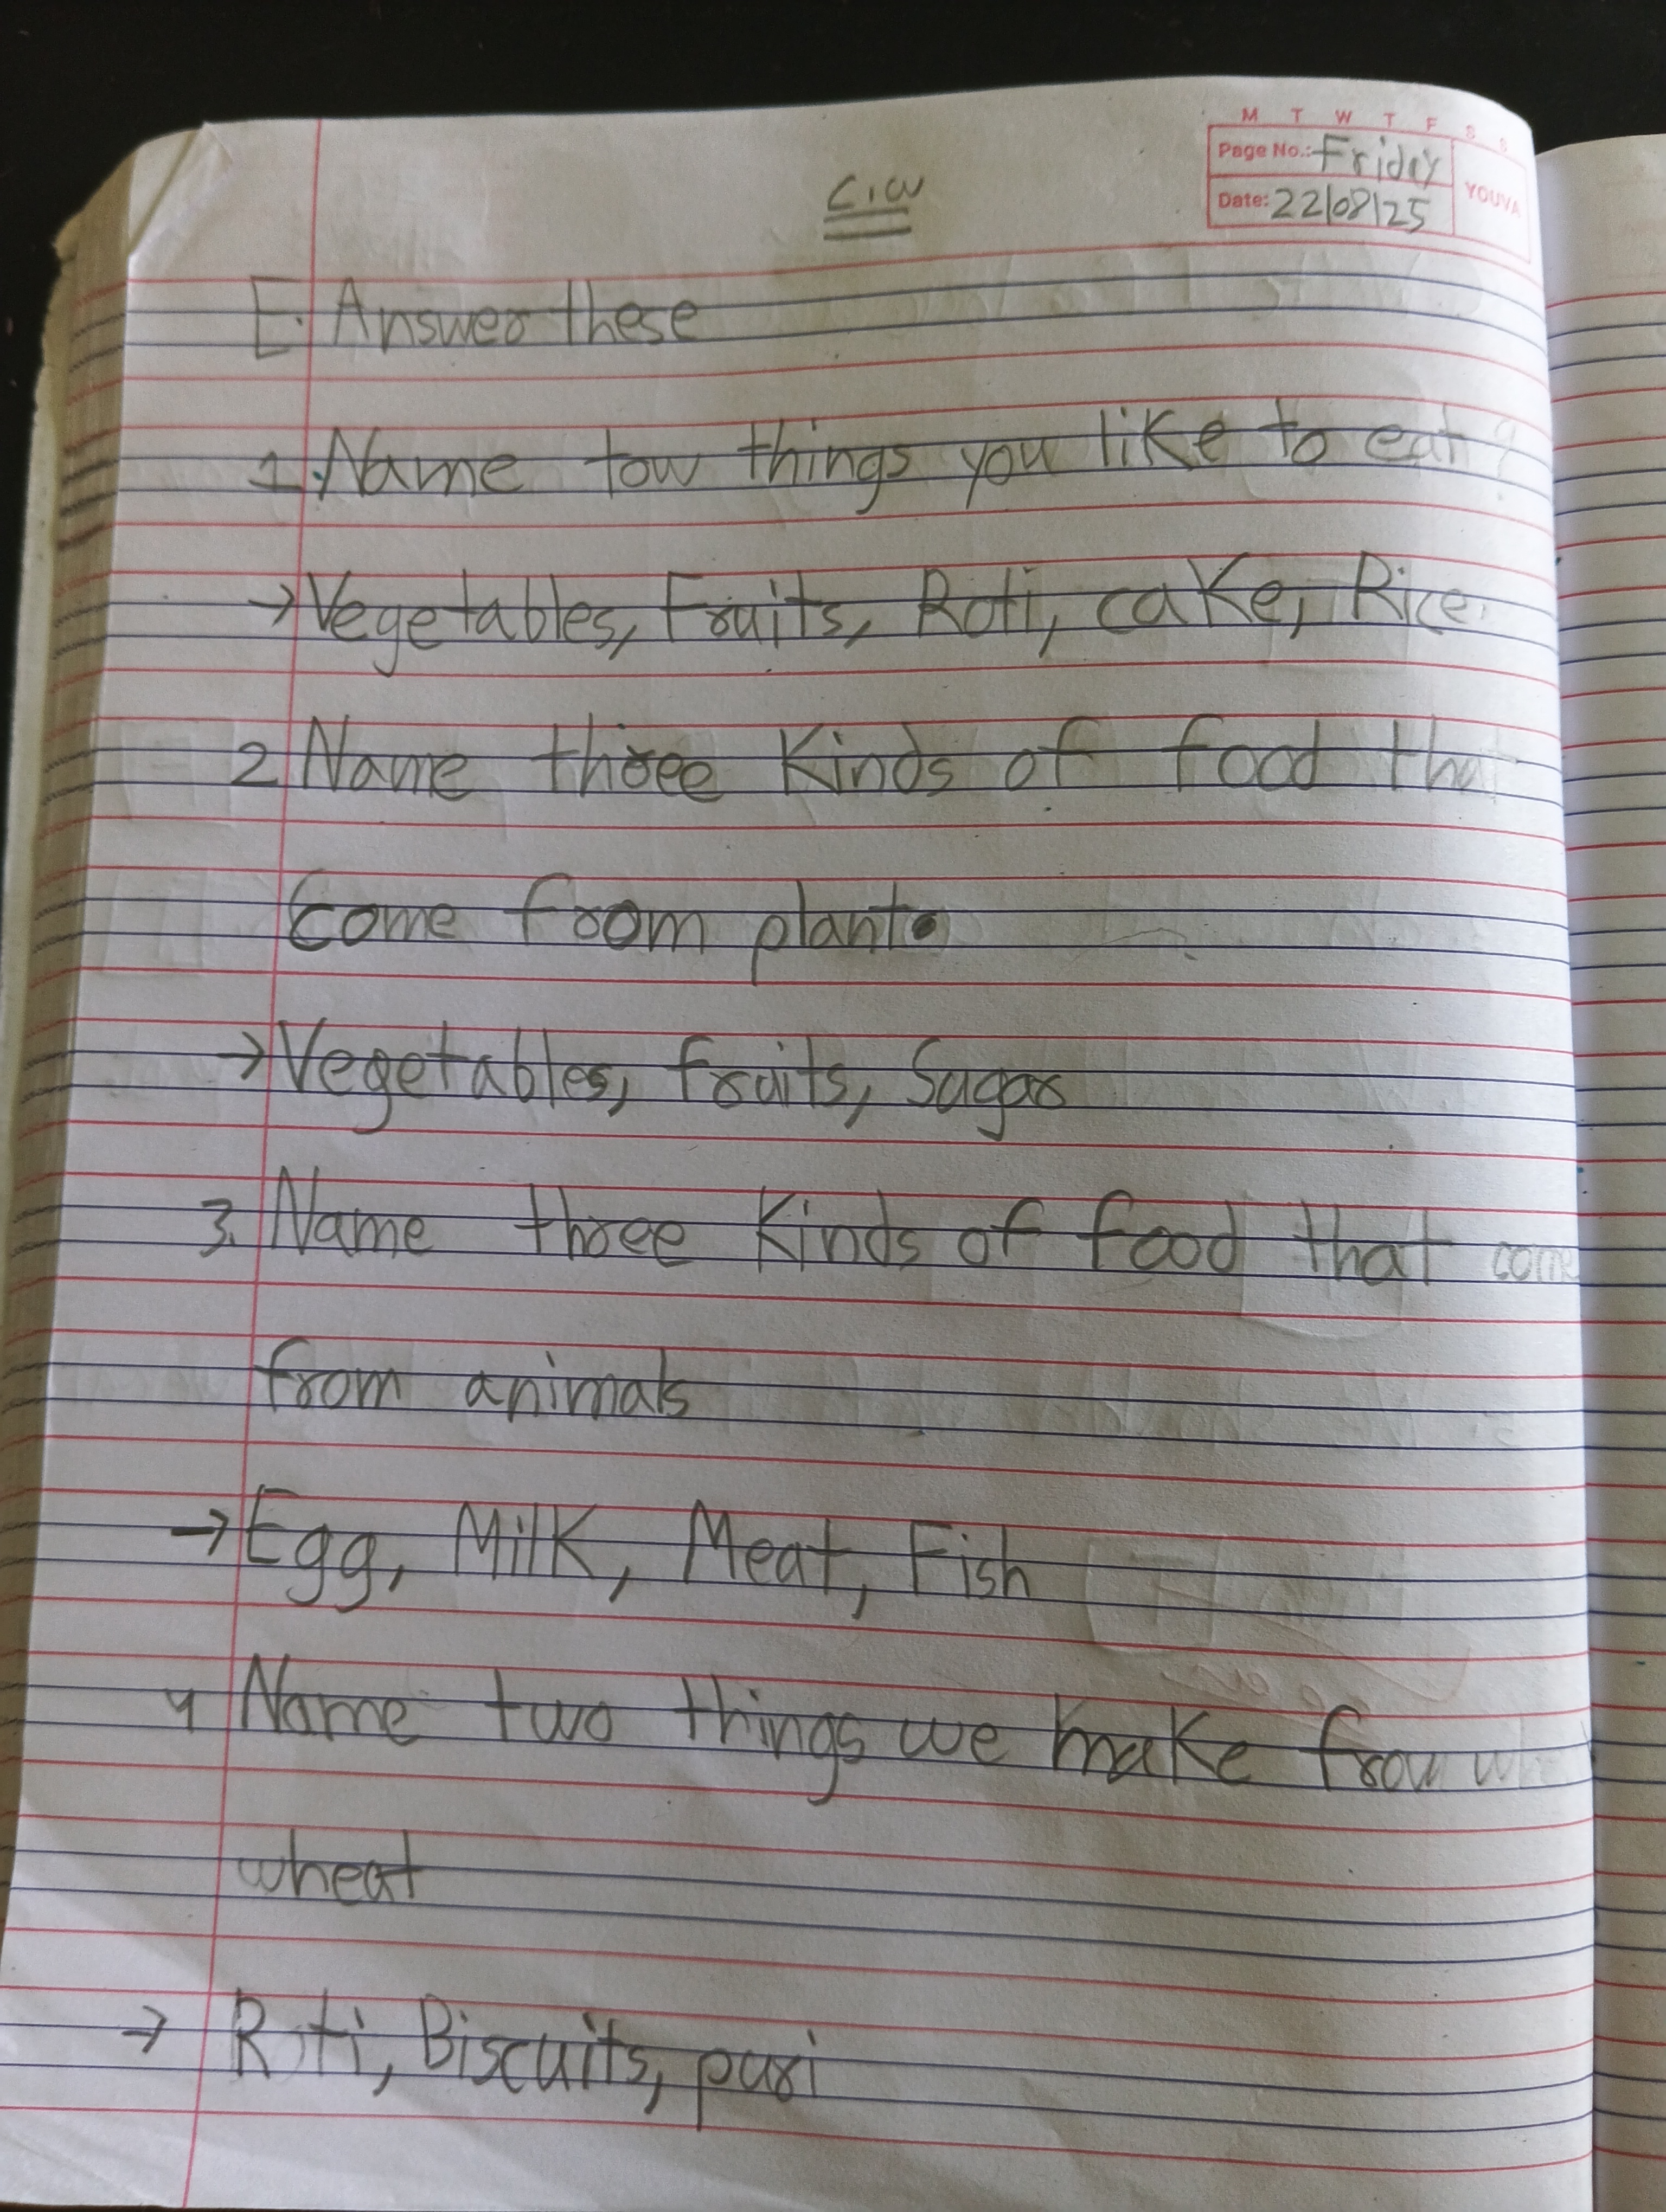 M T W T F S S
Page No.: Friday
Date: 22/08/25
YOUVA
C.W
E. Answer these
1. Name tow things you like to eat?
→ Vegetables, Fruits, Roti, cake, Rice.
2 Name three Kinds of food that
Come from plant.
→ Vegetables, fruits, Sugar
3. Name three Kinds of food that come
from animals
→ Egg, Milk, Meat, Fish
4 Name two things we make from
wheat
→ Roti, Biscuits, puri